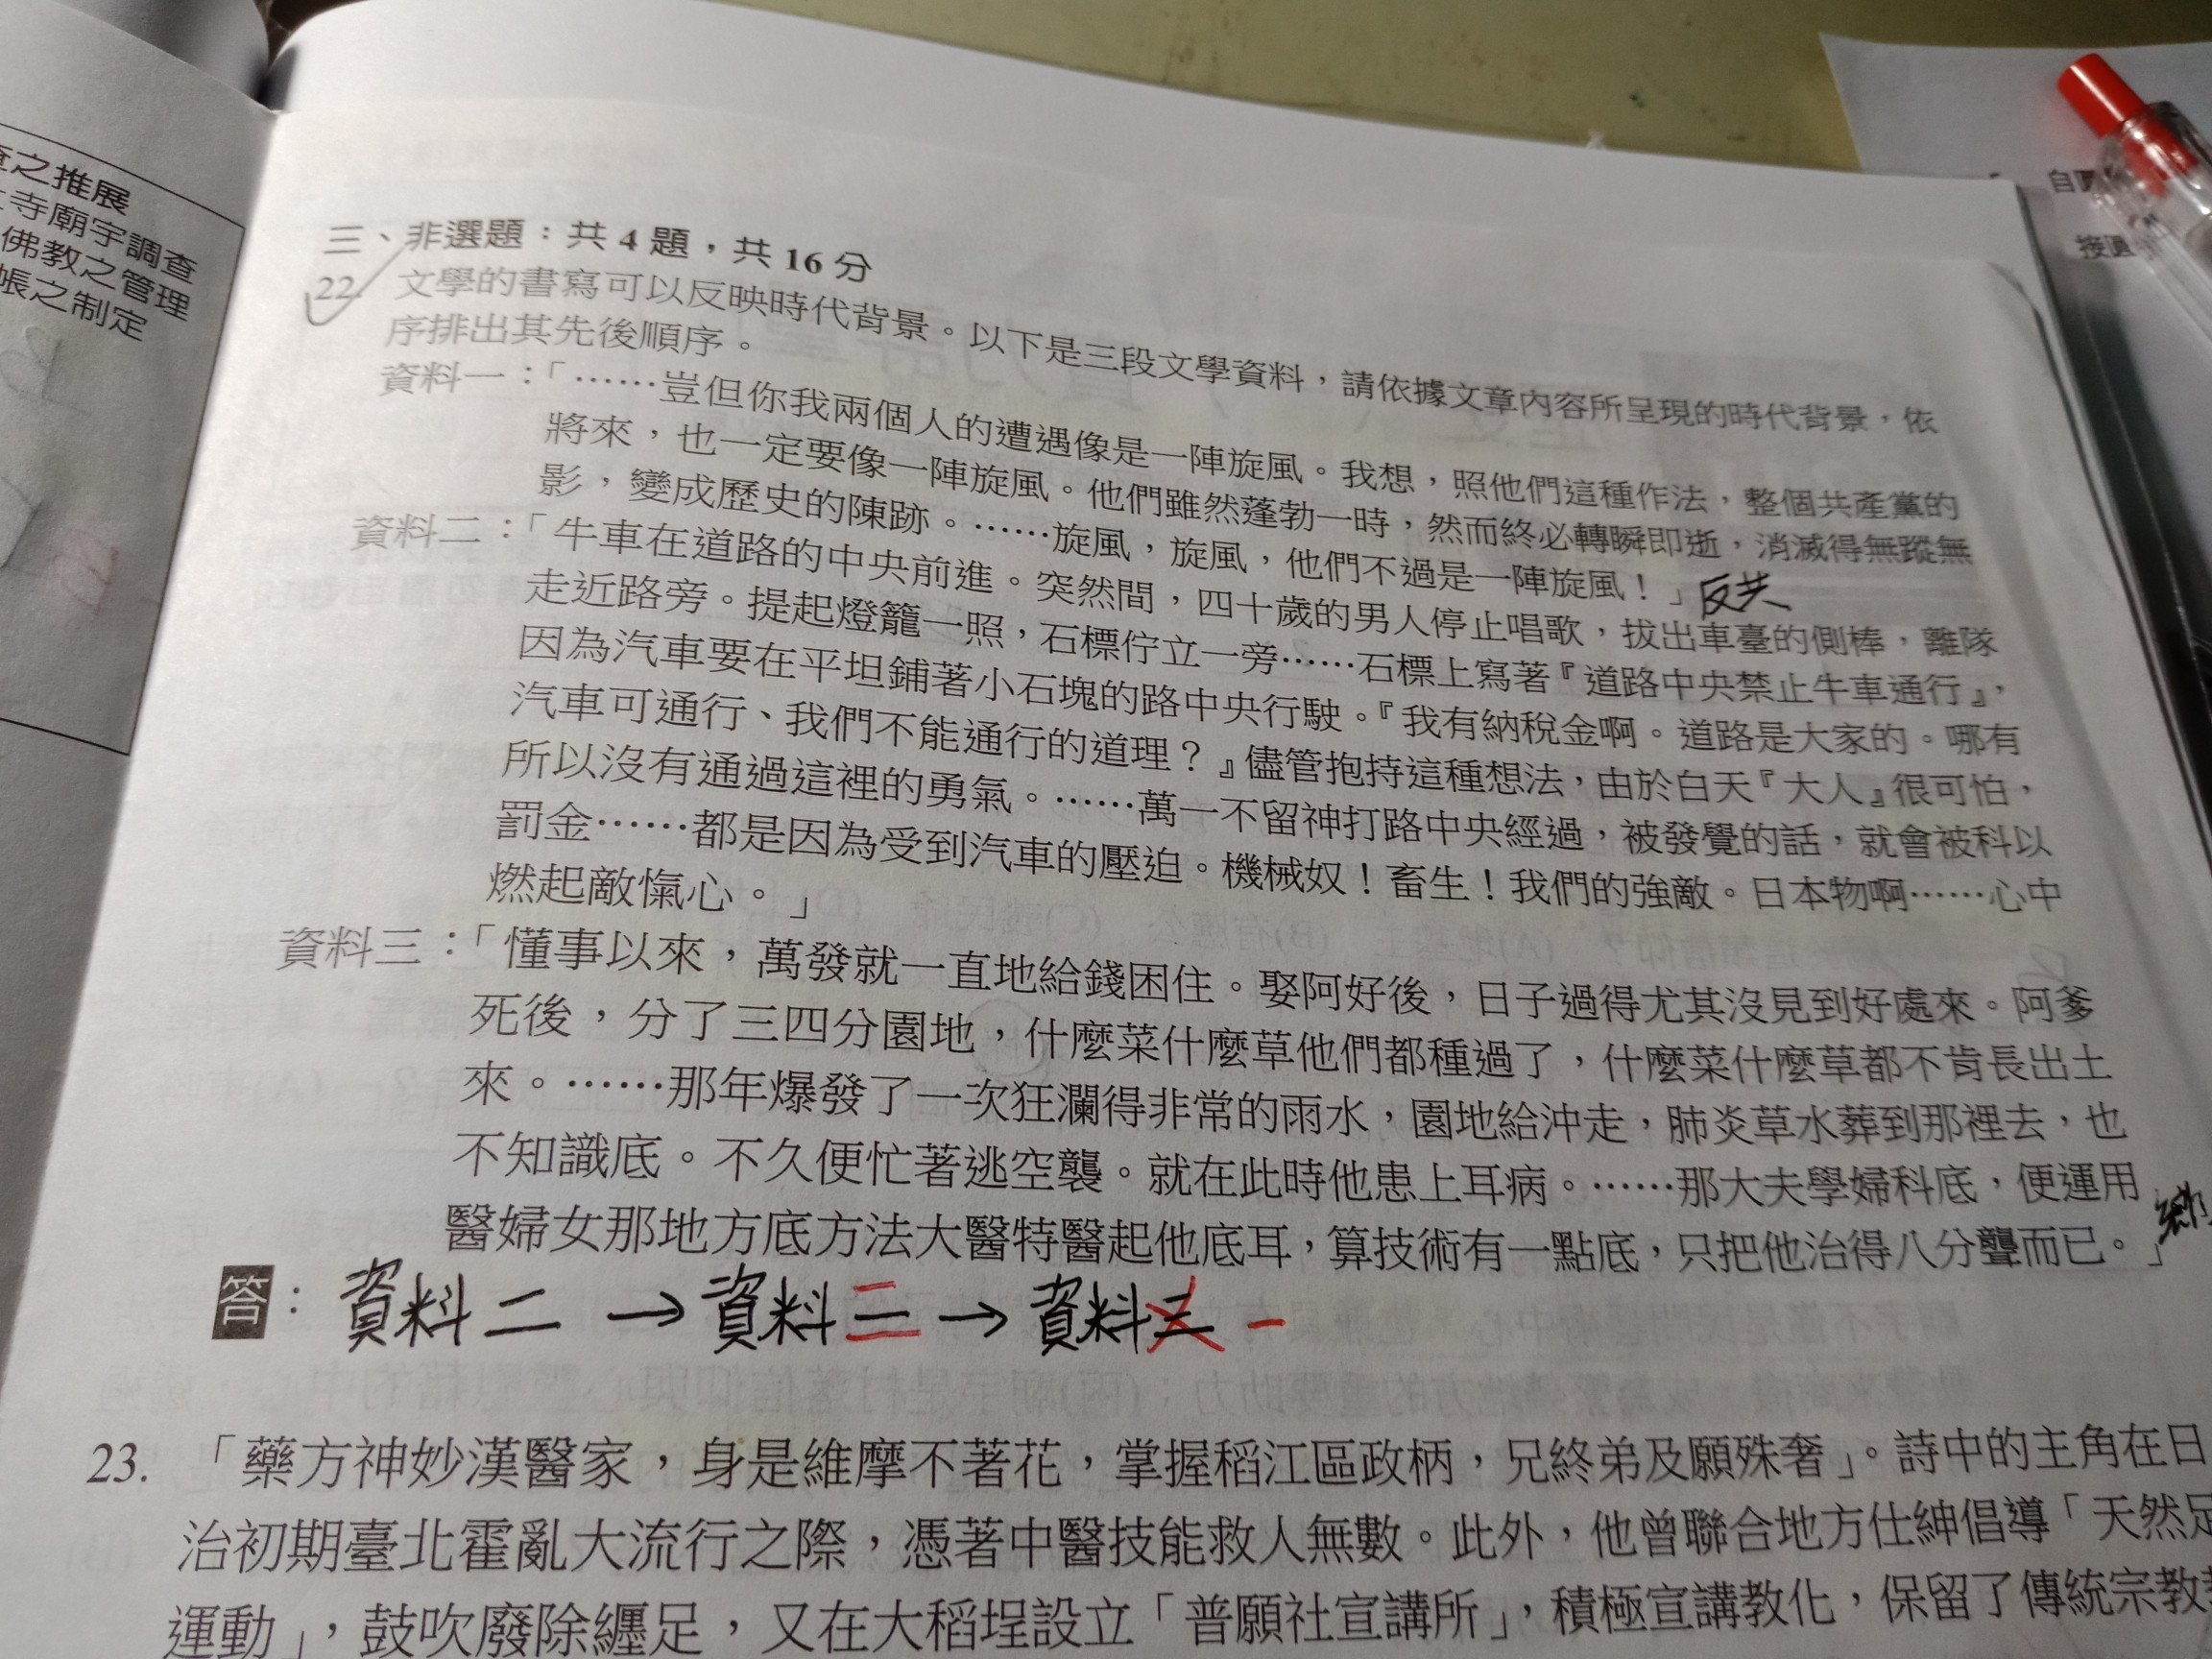 查之推展
寺廟宇調查
佛教之管理
帳之制定
自
按
三、非選題：共 4 題，共 16 分
22. 文學的書寫可以反映時代背景。以下是三段文學資料，請依據文章內容所呈現的時代背景，依
序排出其先後順序。
資料一：「……豈但你我兩個人的遭遇像是一陣旋風。我想，照他們這種作法，整個共產黨的
將來，也一定要像一陣旋風。他們雖然蓬勃一時，然而終必轉瞬即逝，消滅得無蹤無
影，變成歷史的陳跡。……旋風，旋風，他們不過是一陣旋風！」反共
資料二：「牛車在道路的中央前進。突然間，四十歲的男人停止唱歌，拔出車臺的側棒，離隊
走近路旁。提起燈籠一照，石標佇立一旁……石標上寫著『道路中央禁止牛車通行』，
因為汽車要在平坦鋪著小石塊的路中央行駛。『我有納稅金啊。道路是大家的。哪有
汽車可通行、我們不能通行的道理？』儘管抱持這種想法，由於白天『大人』很可怕，
所以沒有通過這裡的勇氣。……萬一不留神打路中央經過，被發覺的話，就會被科以
罰金……都是因為受到汽車的壓迫。機械奴！畜生！我們的強敵。日本物啊……心中
燃起敵愾心。」
資料三：「懂事以來，萬發就一直地給錢困住。娶阿好後，日子過得尤其沒見到好處來。阿爹
死後，分了三四分園地，什麼菜什麼草他們都種過了，什麼菜什麼草都不肯長出土
來。……那年爆發了一次狂瀾得非常的雨水，園地給沖走，肺炎草水葬到那裡去，也
不知識底。不久便忙著逃空襲。就在此時他患上耳病。……那大夫學婦科底，便運用
醫婦女那地方底方法大醫特醫起他底耳，算技術有一點底，只把他治得八分聾而已。」鄉
答：資料二→資料三→資料三 一
23. 「藥方神妙漢醫家，身是維摩不著花，掌握稻江區政柄，兄終弟及願殊奢」。詩中的主角在日
治初期臺北霍亂大流行之際，憑著中醫技能救人無數。此外，他曾聯合地方仕紳倡導「天然足
運動」，鼓吹廢除纏足，又在大稻埕設立「普願社宣講所」，積極宣講教化，保留了傳統宗教